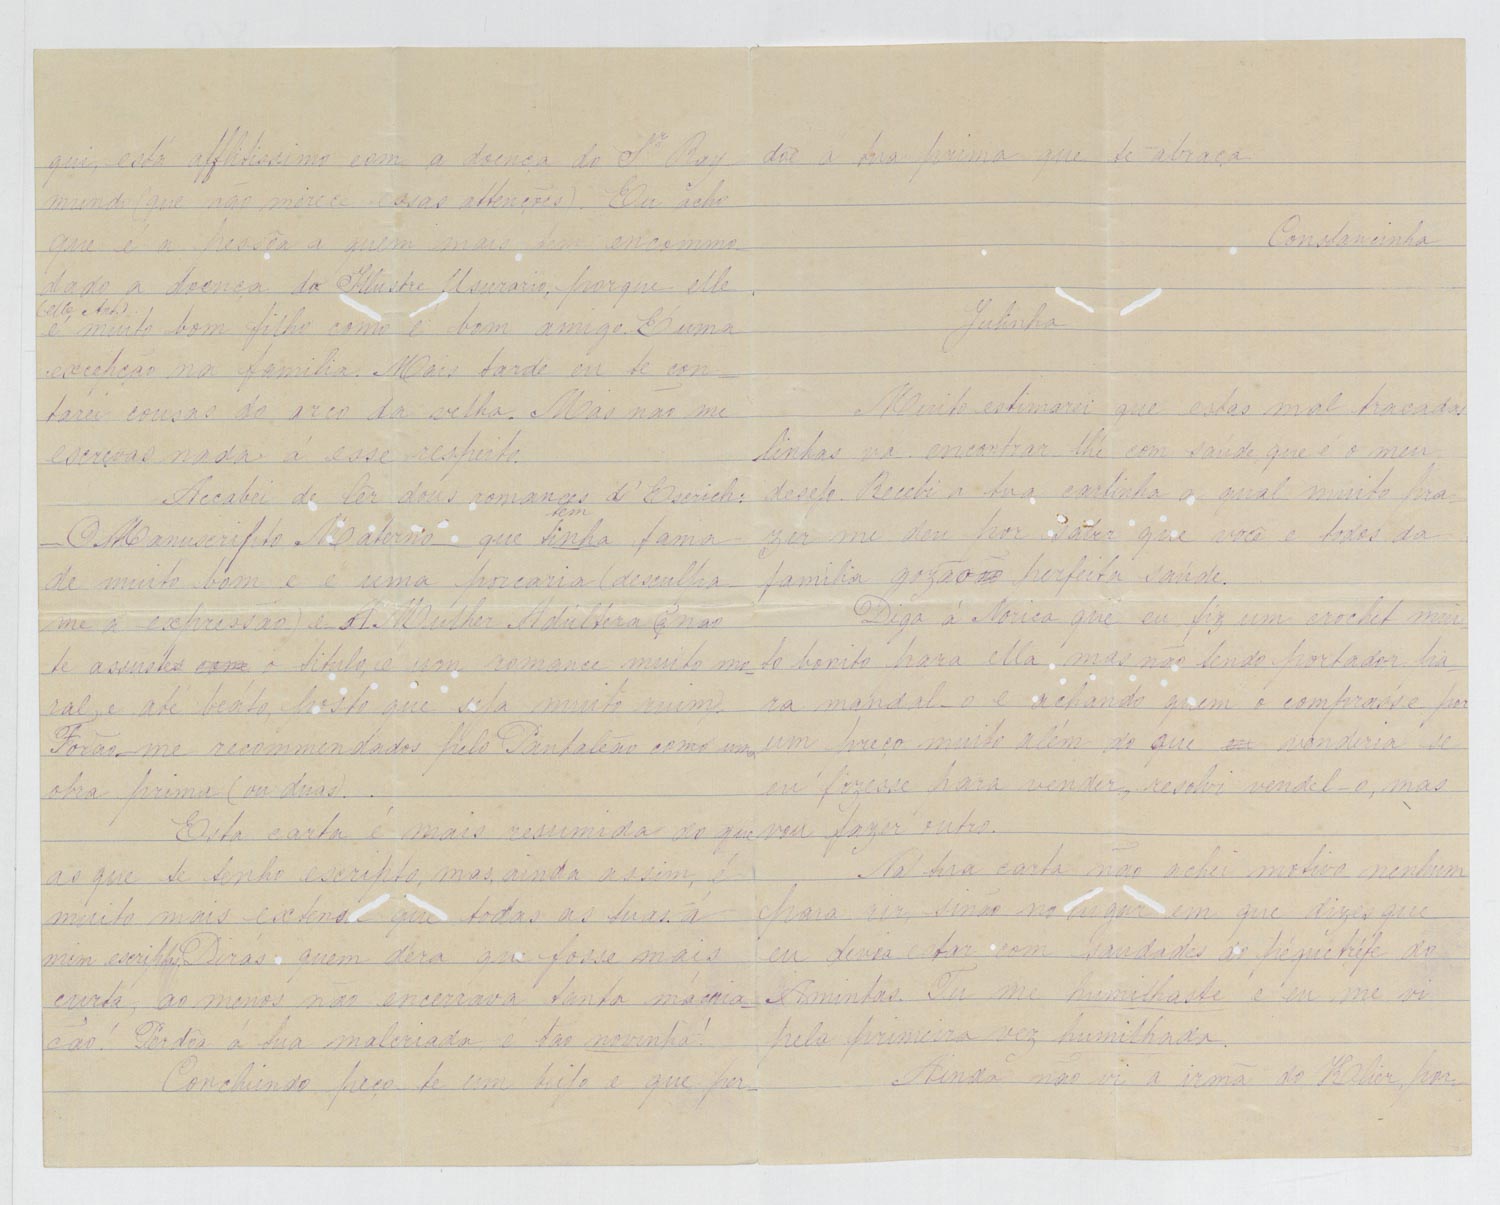 qui, está afflitissimo com a doença do Sr. Ray
mundo (que não merece essas attenções). Eu acho
que é a pessôa a quem mais tem encommo
dado a doença do Illustre Usurario, porque elle
(elle, Ant.)
é muito bom filho como é bom amigo. É uma
excepção na familia. Mais tarde eu te con_
tarei cousas do arco da velha. Mas não me
escrevas nada á esse respeito.
Accabei de lêr dous romances d'Escrich:
_O Manuscripto Materno_ que tem tinha fama
de muito bom e é uma porcaria (desculpa_
me a expressão) e A Mulher Adultera (não
te assustes com o titulo, é um romance muito mo_
ral, e até beáto, posto que seja muito ruim).
Forão_me recommendados pelo Pantaleão como uma
obra prima (ou duas).
Esta carta é mais resumida do que
as que te tenho escripto, mas, ainda assim, é
muito mais extensa que todas as tuas á
mim escriptas. Dirás: quem déra que fosse mais
curta, ao menos não encerrava tanta mácria_
ção! Perdôa á tua malcriada, é tão novinha!
Concluindo peço_te um bijo e que per_
dôe a tua prima que te abraça
Constancinha
Julinha
Muito estimarei que estas mal tracadas
linhas vá encontrar_lhe com saúde que é o meu
desejo. Recebi a tua cartinha a qual muito pra_
zer me deu por saber que você e todos da
familia gozão perfeita saúde.
Diga á Norica que eu fiz um crochet mui_
to bonito para ella, mas não tendo portador pa_
ra mandal_o e achando quem o comprasse por
um preço muito além do que eu venderia se
eu fizesse para vender, resolvi vendel_o, mas
vou fazer outro.
Na tua carta não achei motivo nenhum
para rir, sinão no lugar em que dizes que
eu devia estar com saudades do péquetitte do
Amintas. Tu me humilhaste e eu me vi
pela primeira vez humilhada.
Ainda não vi a irmã do Klier, por_